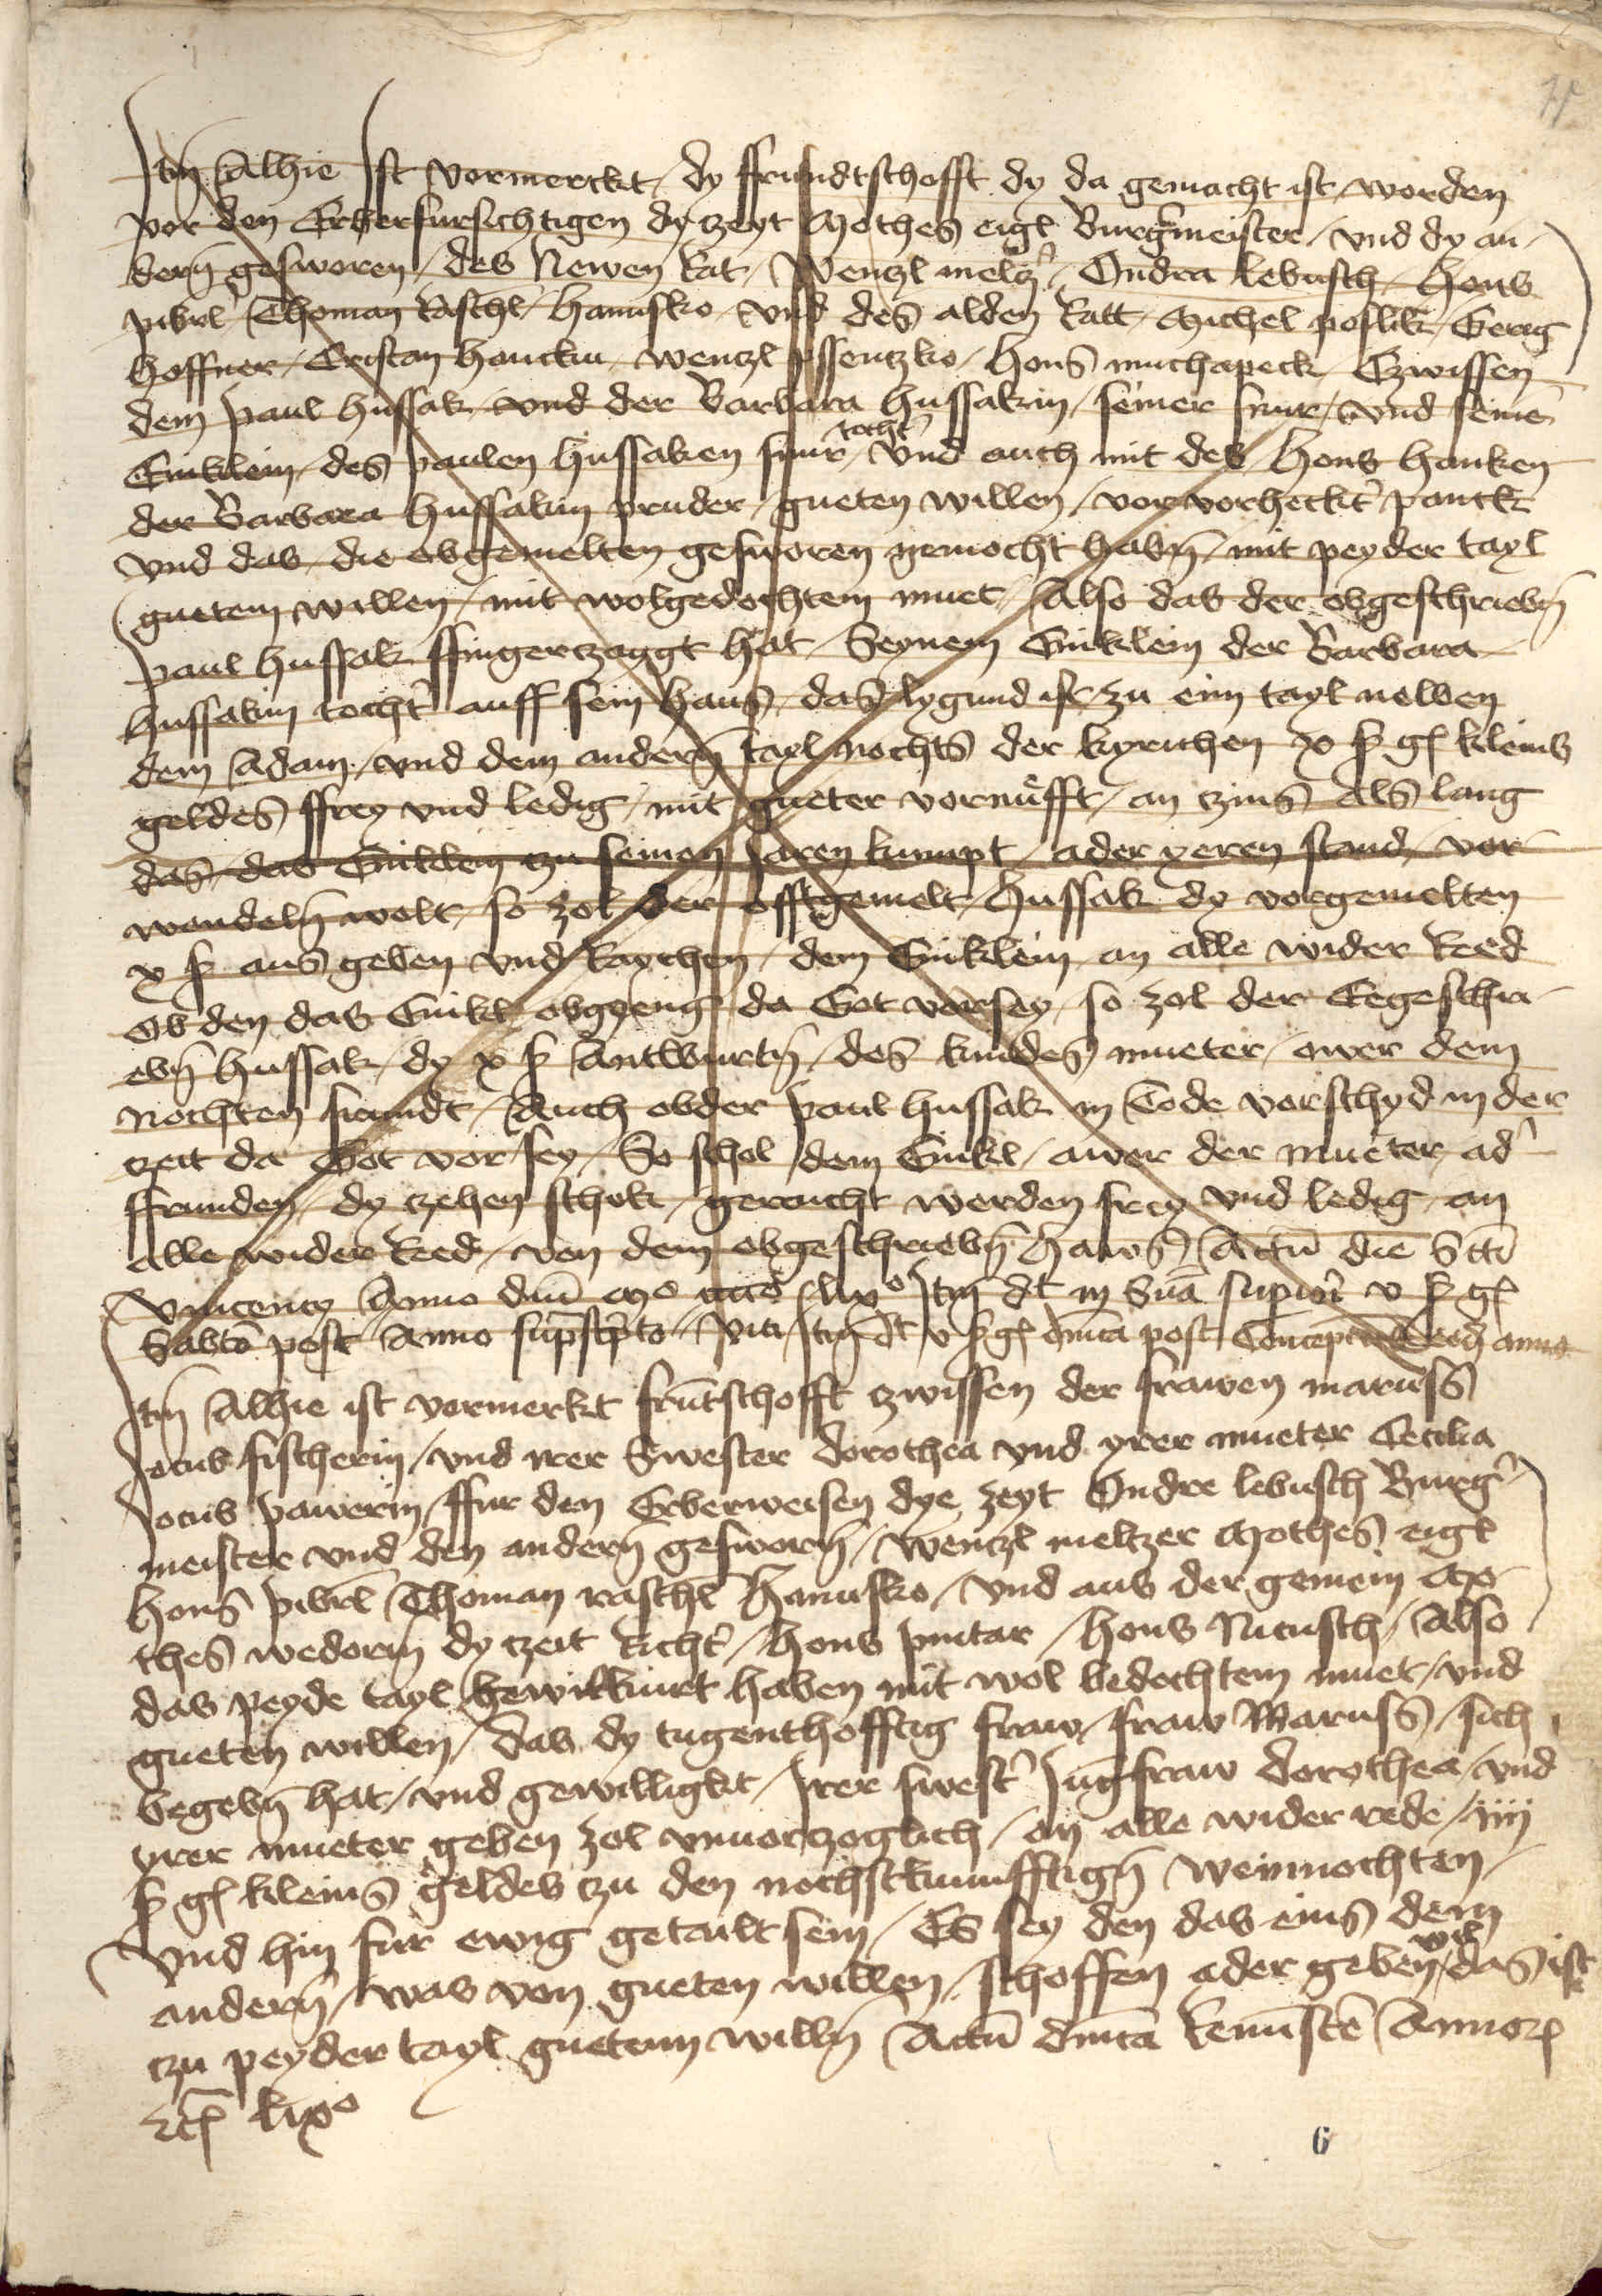 Itm Alhie Ist vormerckt / dy ffrundtschofft dy da gemacht ist worden
vor den Erberfursichtigen dy zeyt Mothes eigl Burgmeister / vnd dy an
dern gesworen / des Newen Rat / Wenczl melcz / Ondra lebusch / Hons
pibrl Thoman Raschl / Hanusko / vnd des alden Ratt / Michel poslik / Gerig
Hoffner / Cristan Hanckn / wenczl pssentzko / Hons muchapeck Czwissen
dem paul Hussak / vnd der Barbara Hussakin / seiner snur / vnd seine
Enicklein / des paulen Hussaken snur tocht / vnd auch mit des / Hons Hanken
der Barbara Hussakin pruder / gueten willen / vor vorheckt panck
vnd das / die obgemelten gesworen gemocht habn / mit peyder tayl
guetem willen / mit wolgedochtem muet / Also das der obgeschriebn
paul Hussak ffingerczaygt hat / Seynem Enicklein der Barbara
Hussakin tocht auff sein Haus / das lygund ist zu eim tayl neben
dem Adam / vnd dem andern tayl nochts der kyrichen x ß gl kleins
geldes ffrey vnd ledig / mit gueter vornufft / an czins als lang
das / das Enicklein zu seinen Jaren kumpt / ader yeren stand / vor
wandeln wolt / so zol der offtgemelt / Hussak dy vorgemelten
x ß aus geben vnd Raychen / dem Enicklein an alle wider Reed
Ob den das Enickl obgyeng da Got vorsey / so zol der Eegeschri
ebn Hussak / dy x ß Antwurtn / des kindes mueter / ower dem
nochten frundt / Auch obder paul Hussak in Tode vorschyd in der
zeit da Got vor sey / So schol dem Enickl / awer der mueter ad
ffrunden / dy czehen schok / gereicht werden frey vnd ledig / an
alle wider Reed / von dem obgeschriebn Haws Actu die Scti
Vincency Anno dni mo cccco lixo Itm dt in Sua supiori v ß gl
Sabto post Anno supscpto viti Itm dt v ß gl dnica post Concepcois anno
Itm Alhie ist vormerkt fruntschofft czwissen der frawen maruss
Jocus fischerin / vnd irer Swester dorothea vnd yrer mueter Cecilia
Jocus pawerin / ffur den Erberweisen dye zeyt Ondre lebusch Burg
meister vnd den andern gesworn / wenczl meltzer Mothes eigl
Hons pibrl Thoman raschl Hanusko / vnd aus der gemein Mo
thes wedorn dy zeit Richt / Hons pintar / Hons Nicusch / Also
das peyde tayl bewilkurt haben mit wol bedochtem muet / vnd
gueten willen / das dy tugenthofftig fraw / fraw Maruss / sich
begebn hat / vnd gewilligkt / Irer swest Jungfraw dorothea / vnd
yrer mueter geben zol vnuorczoglich / on alle wider rede / iiij
ß gl kleins geldes czu den nochstkumfftign Weinnochten /
vnd hin fur ewig getailt sein / Es sey den das eins dem
andern / was von gueten willen / schoffen ader geben wil / das ist
czu peyder tayl guetem willn Actu dnica Reminiscere Annorum
etc lixo
6